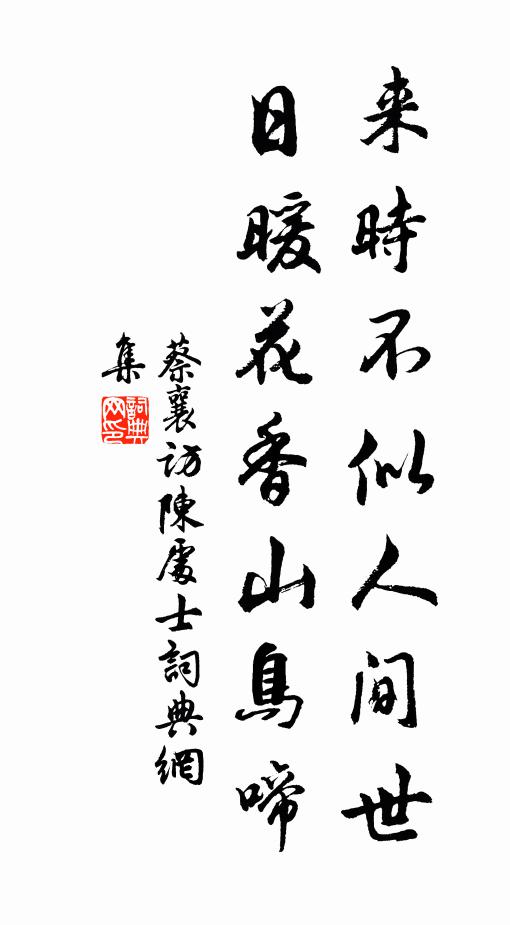 来時不似人間世
日暖花香山鳥啼
蔡襄訪陳處士詞典網
集
詞典网印